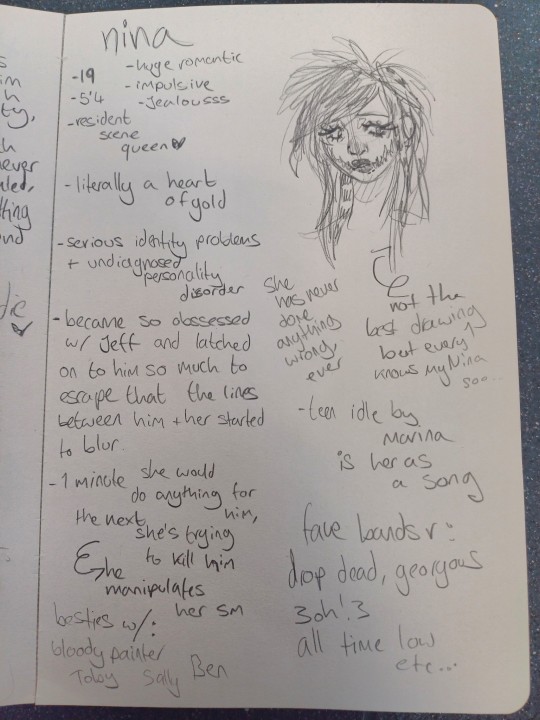 nina
-19
-5'4
-resident
scene
queen♥
-huge romantic
-impulsive
-Jealousss
-literally a heart
of gold
-serious identity problems
+ undiagnosed
personality
disorder
-became so obssessed
w/ Jeff and latched
on to him so much to
escape that the lines
between him + her started
to blur.
-1 minute she would
do anything for
him,
the next
she's trying
to kill him
he
manipulates
her sm
besties w/:
bloody painter
Toby Sally Ben
she
has never
done
anything
wrong,
ever
not the
best drawing
but every1
knows my Nina
soo...
-teen idle by
marina
is her as
a song
fave bands r:
drop dead, georgous
3oh!3
all time low
etc...